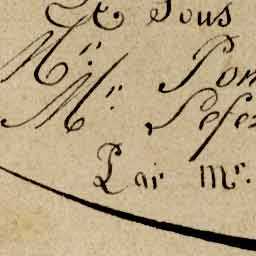 & Sous
Mr. Pon
Mr. Lefe
Par mr.